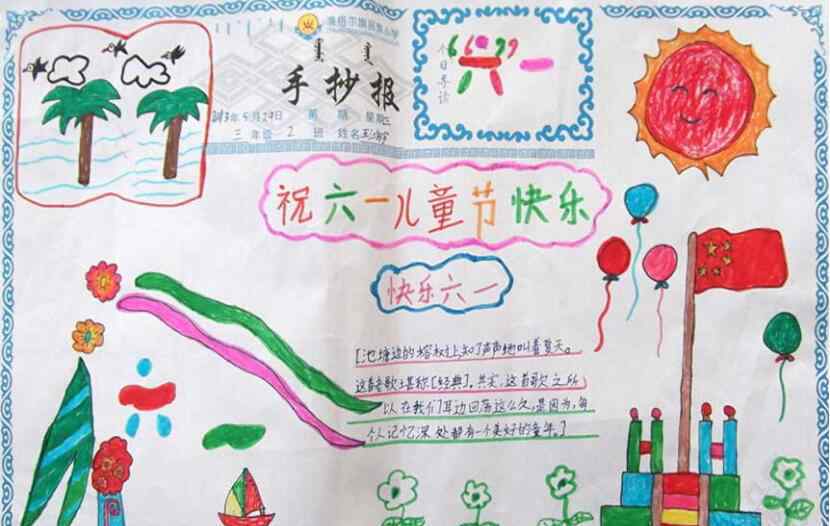 手抄报
2013年5月29日 第 期 星期三
三年级 2 班 姓名
六一
今日导读
祝六一儿童节快乐
快乐六一
[池塘边的榕树上知了声声地叫着夏天。
这首歌堪称[经典]。其实,这首歌之所
以在我们耳边回荡这么久,是因为,每
个人记忆深处都有一个美好的童年。]
六一